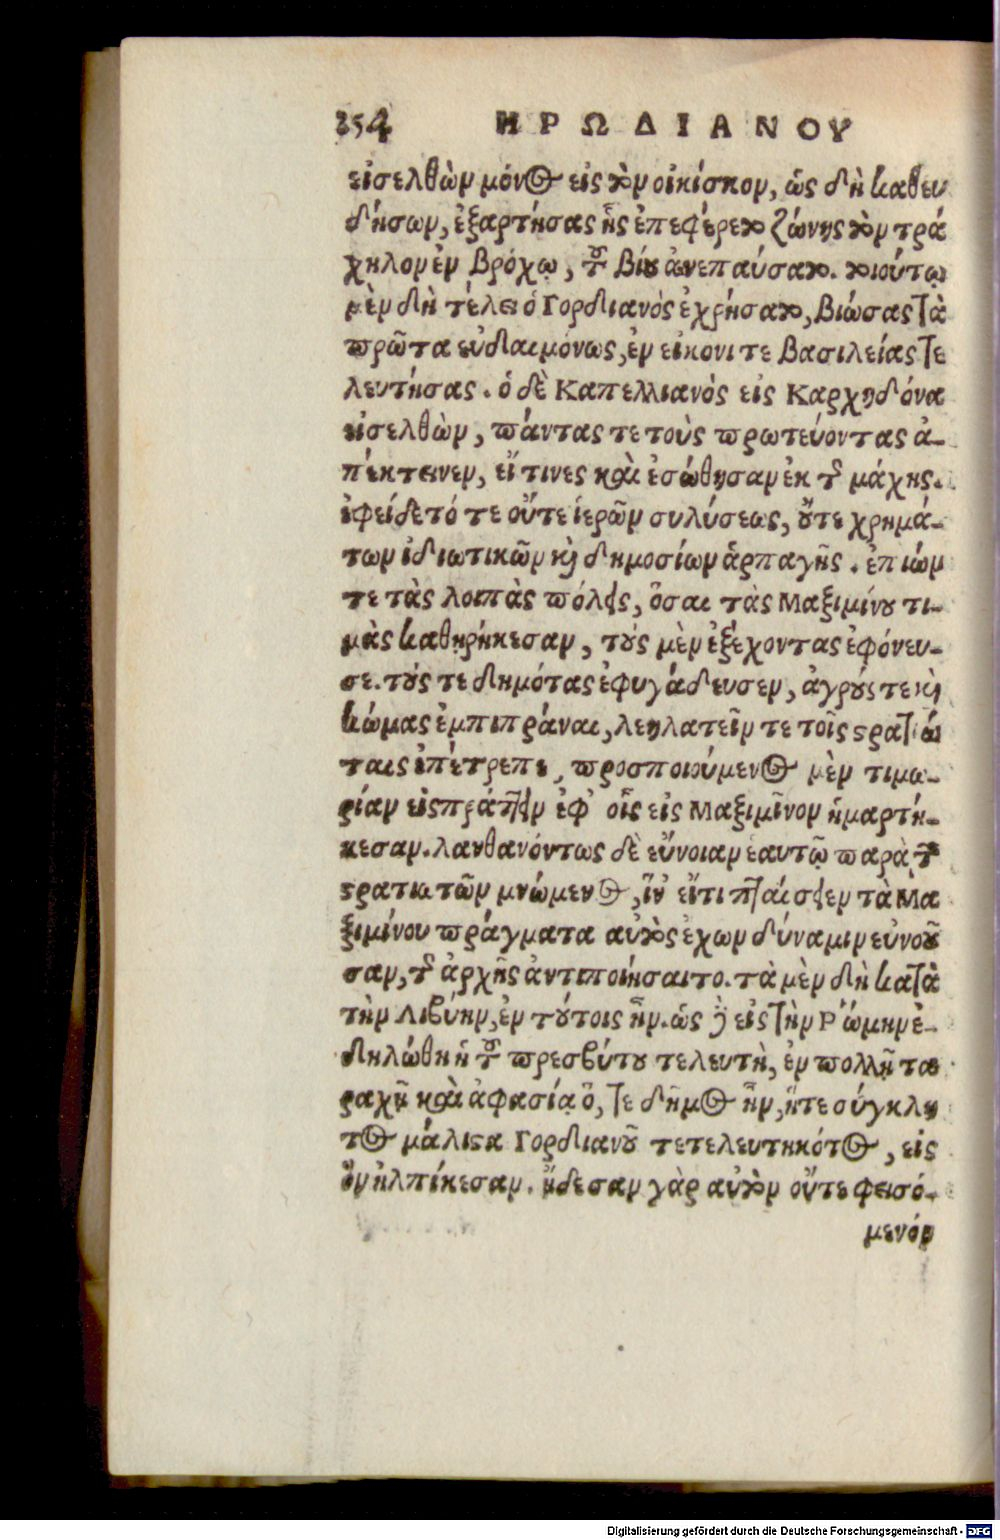 254 ΗΡΩΔΙΑΝΟΥ
εἰσελθὼν μόνος εἰς τὸν οἰκίσκον, ὡς δὴ καθευ
δήσων, ἐξαρτήσας ἧς ἐπεφέρετο ζώνης τὸν τρά
χηλον ἐν βρόχῳ, τοῦ βίου ἀνεπαύσατο. τοιούτῳ
μὲν δὴ τέλει ὁ Γορδιανὸς ἐχρήσατο, βιώσας τὰ
πρῶτα εὐδαιμόνως, ἐν εἰκονι τε βασιλείας τε
λευτήσας. ὁ δὲ Καπελλιανὸς εἰς Καρχηδόνα
εἰσελθὼν, πάντας τε τοὺς πρωτεύοντας ἀ-
πέκτεινεν, εἴ τινες καὶ ἐσώθησαν ἐκ τῆς μάχης.
ἐφείδετό τε οὔτε ἱερῶν συλύσεως, οὔτε χρημά-
των ἰδιωτικῶν καὶ δημοσίων ἁρπαγῆς. ἐπιών
τε τὰς λοιπὰς πόλεις, ὅσαι τὰς Μαξιμίνου τι-
μὰς καθῃρήκεσαν, τούς μὲν ἐξέχοντας ἐφόνευ-
σε. τούς τε δημότας ἐφυγάδευσεν, ἀγρούς τε καὶ
κώμας ἐμπιπράναι, λεηλατεῖν τε τοῖς στρατιώ
ταις ἐπέτρεπε, προσποιούμενος μὲν τιμω-
ρίαν εἰσπράττειν ἐφ' οἷς εἰς Μαξιμῖνον ἡμαρτή-
κεσαν. λανθανόντως δὲ εὔνοιαν ἑαυτῷ παρὰ τῶν
στρατιωτῶν μνώμενος, ἵν' εἴ τι πταίσειεν τὰ Μα
ξιμίνου πράγματα αὐτὸς ἔχων δύναμιν εὐνοοῦ
σαν, τῆς ἀρχῆς ἀντιποιήσαιτο. τὰ μὲν δὴ κατὰ
τὴν Λιβύην, ἐν τούτοις ἦν. ὡς δὲ εἰς τὴν Ῥώμην ἐ-
δηλώθη ἡ τοῦ πρεσβύτου τελευτὴ, ἐν πολλῇ τα
ραχῇ καὶ ἀφασίᾳ ὅ, τε δῆμος ἦν, ἥτε σύγκλη
τος μάλιστα Γορδιανοῦ τετελευτηκότος, εἰς
ὃν ἠλπίκεσαν. ᾔδεσαν γὰρ αὐτὸν οὔτε φεισό-
μενόν
Digitalisierung gefördert durch die Deutsche Forschungsgemeinschaft - DFG